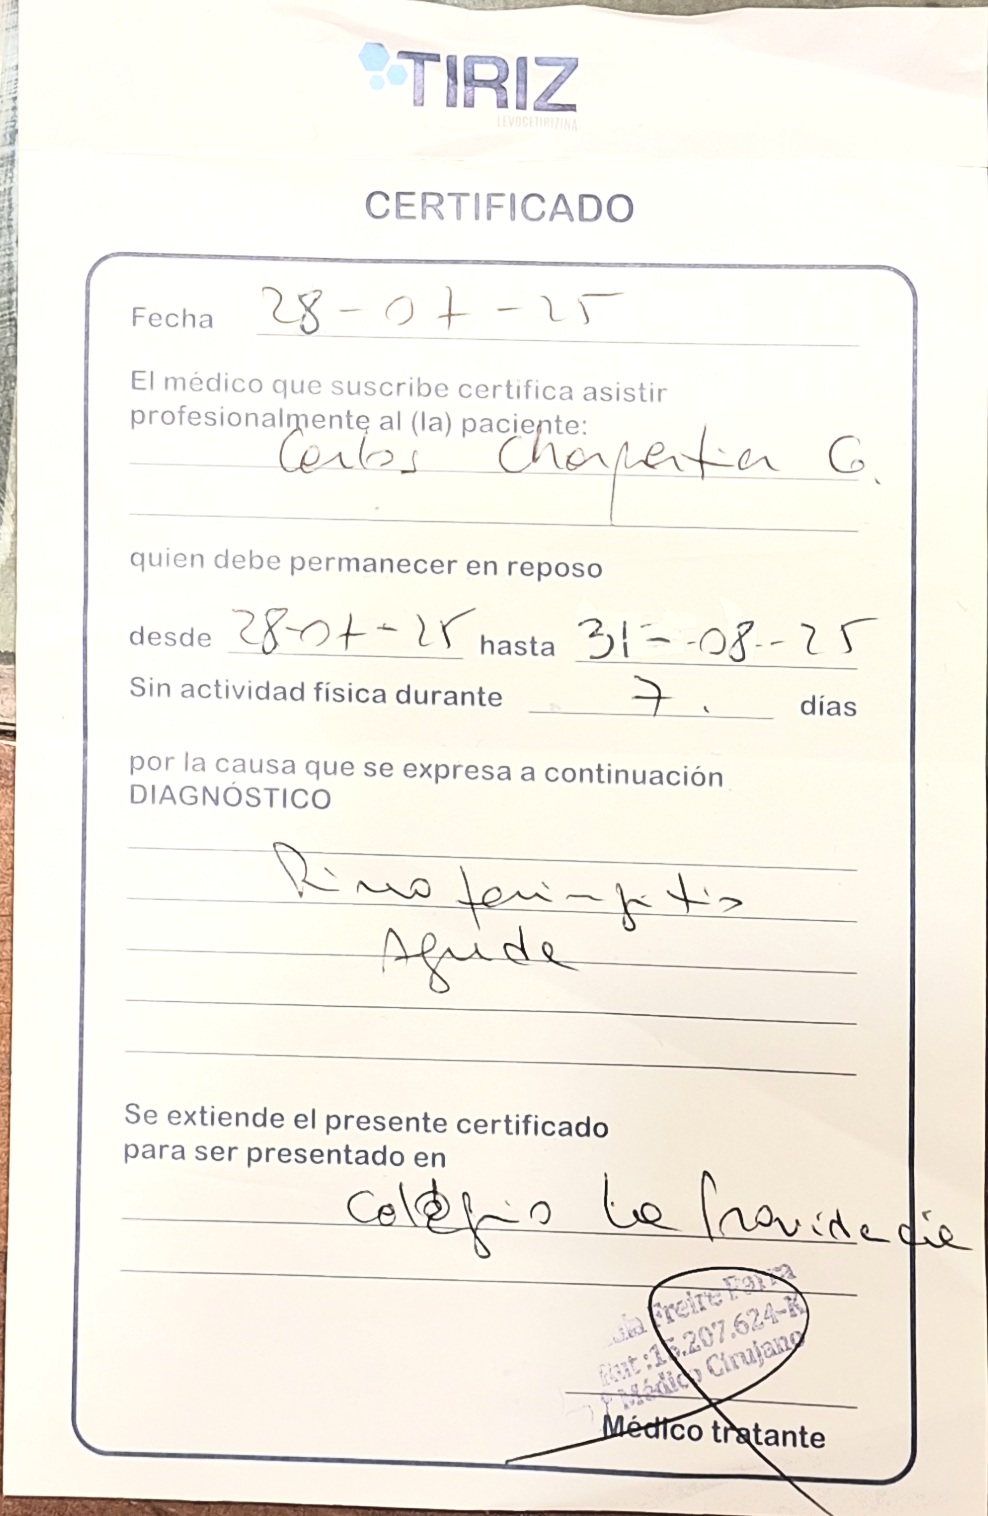 TIRIZ
LEVOCETIRIZINA
CERTIFICADO
Fecha 28-07-25
El médico que suscribe certifica asistir
profesionalmente al (la) paciente:
Carlos Charpentier G.
quien debe permanecer en reposo
desde 28-07-25 hasta 31-08-25
Sin actividad física durante 7. días
por la causa que se expresa a continuación
DIAGNÓSTICO
Rinofaringitis
Aguda
Se extiende el presente certificado
para ser presentado en
Colegio La Providencia
Freire Parra
Rut:15.207.624-K
Médico Cirujano
Médico tratante